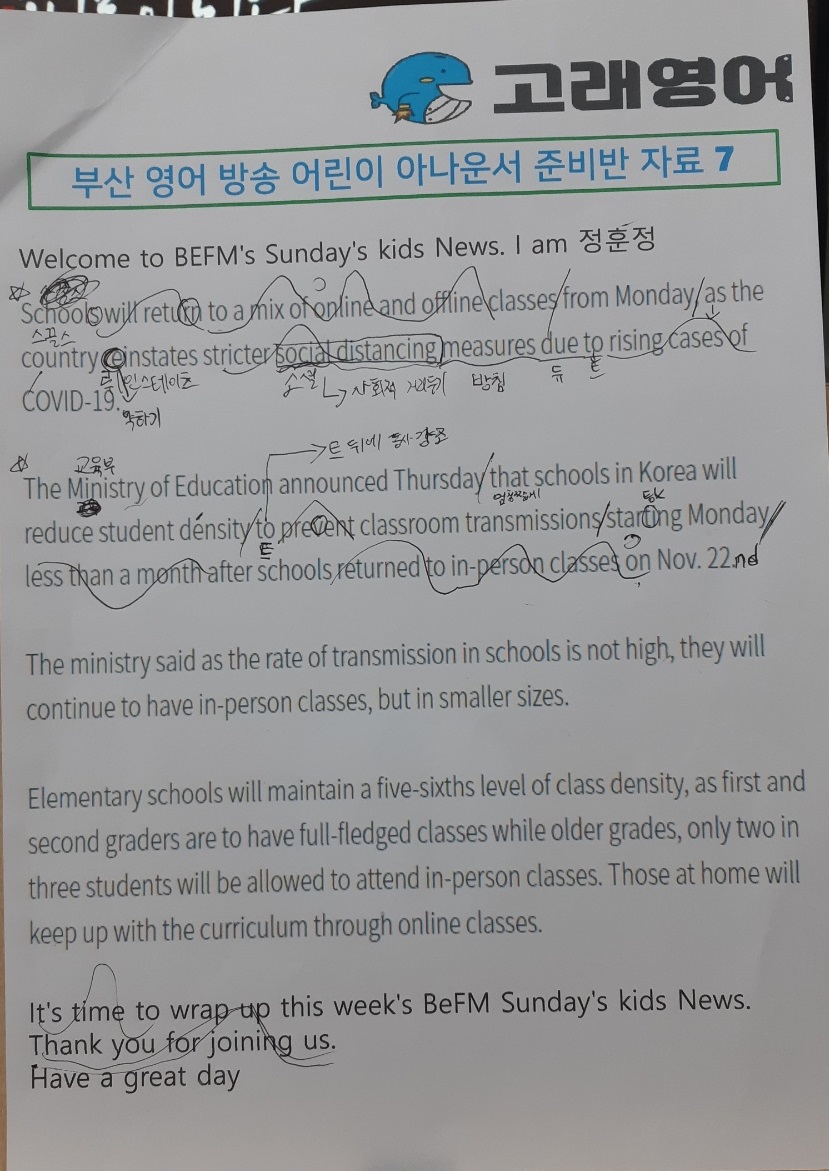 고래영어
부산 영어 방송 어린이 아나운서 준비반 자료 7
Welcome to BEFM's Sunday's kids News. I am 정훈정
Schools will return to a mix of online and offline classes from Monday, as the
스끌스
country reinstates stricter social distancing measures due to rising cases of
인스테이츠 소셜 사회적 거리두기 방침 듀 트
COVID-19.
약하기
트 뒤에 동사 강조
교육부
The Ministry of Education announced Thursday that schools in Korea will
reduce student density to prevent classroom transmissions starting Monday,
트
less than a month after schools returned to in-person classes on Nov. 22.nd
The ministry said as the rate of transmission in schools is not high, they will
continue to have in-person classes, but in smaller sizes.
Elementary schools will maintain a five-sixths level of class density, as first and
second graders are to have full-fledged classes while older grades, only two in
three students will be allowed to attend in-person classes. Those at home will
keep up with the curriculum through online classes.
It's time to wrap up this week's BeFM Sunday's kids News.
Thank you for joining us.
Have a great day